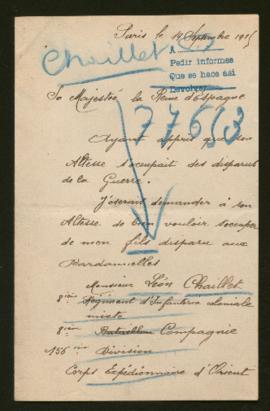 Paris le 14 Septembre 1915
Chaillet
A
Pedir informes
Que se hace así
Devolver
77653
Sa Majesté la Reine d'Espagne
Ayant appris que son
Altesse s'occupait des disparus
de la Guerre.
J'oserai demander à son
Altesse de bien vouloir s'occuper
de mon fils disparu aux
Dardannelles
Monsieur Léon Chaillet
8ème Régiment d'Infanterie Coloniale
mixte
8ème Bataillon Compagnie
156 ème Division
Corps Expéditionnaire d'Orient